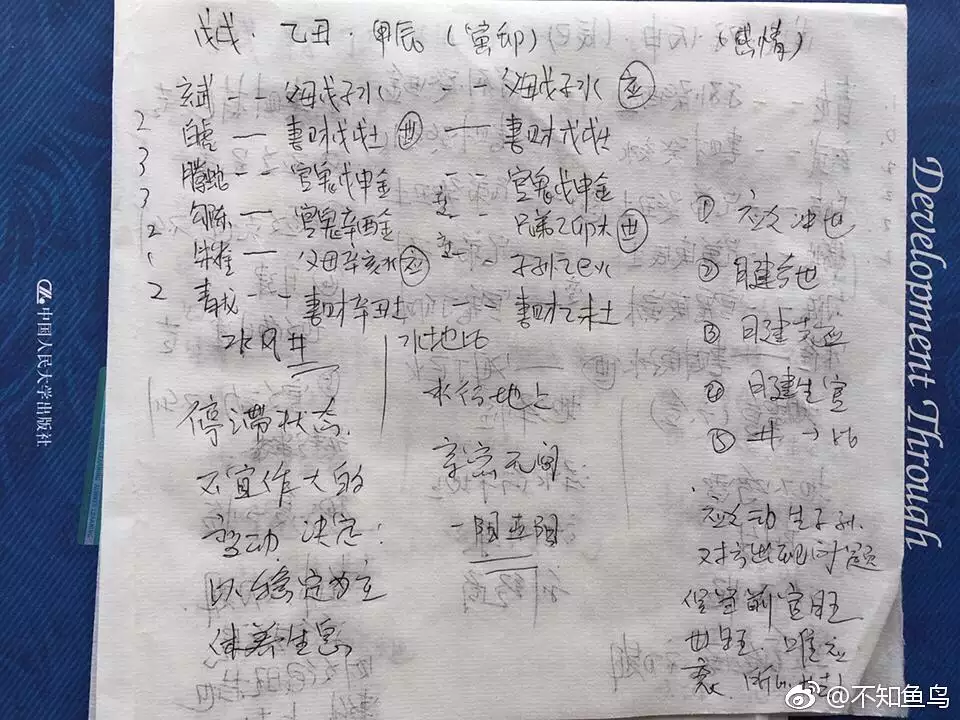 戊戌·乙丑·甲辰(寅卯) (感情)
玄武 -- 父母戊子水 -- 父母戊子水 应
2 白虎 — 妻财戊戌土 世 — 妻财戊戌土
3 腾蛇 -- 官鬼戊申金 -- 官鬼戊申金
3 勾陈 — 官鬼辛酉金 -- 兄弟乙卯木 世
2 朱雀 — 父母辛亥水 应 -- 子孙乙巳火
2 青龙 -- 妻财辛丑土 -- 妻财乙未土
水风井
水地比
停滞状态.
不宜作大的
变动 决定:
以稳定为主
休养生息
水行地上
亲密无间
一阳五阴
① 应爻冲世
② 日建合世
③ 月建克应
④ 日建生官
⑤ 井→比
应爻动 生子孙.
对方出现问题
但当前官旺
世旺. 唯应
衰.
中国人民大学出版社
Development Through
@不知鱼鸟